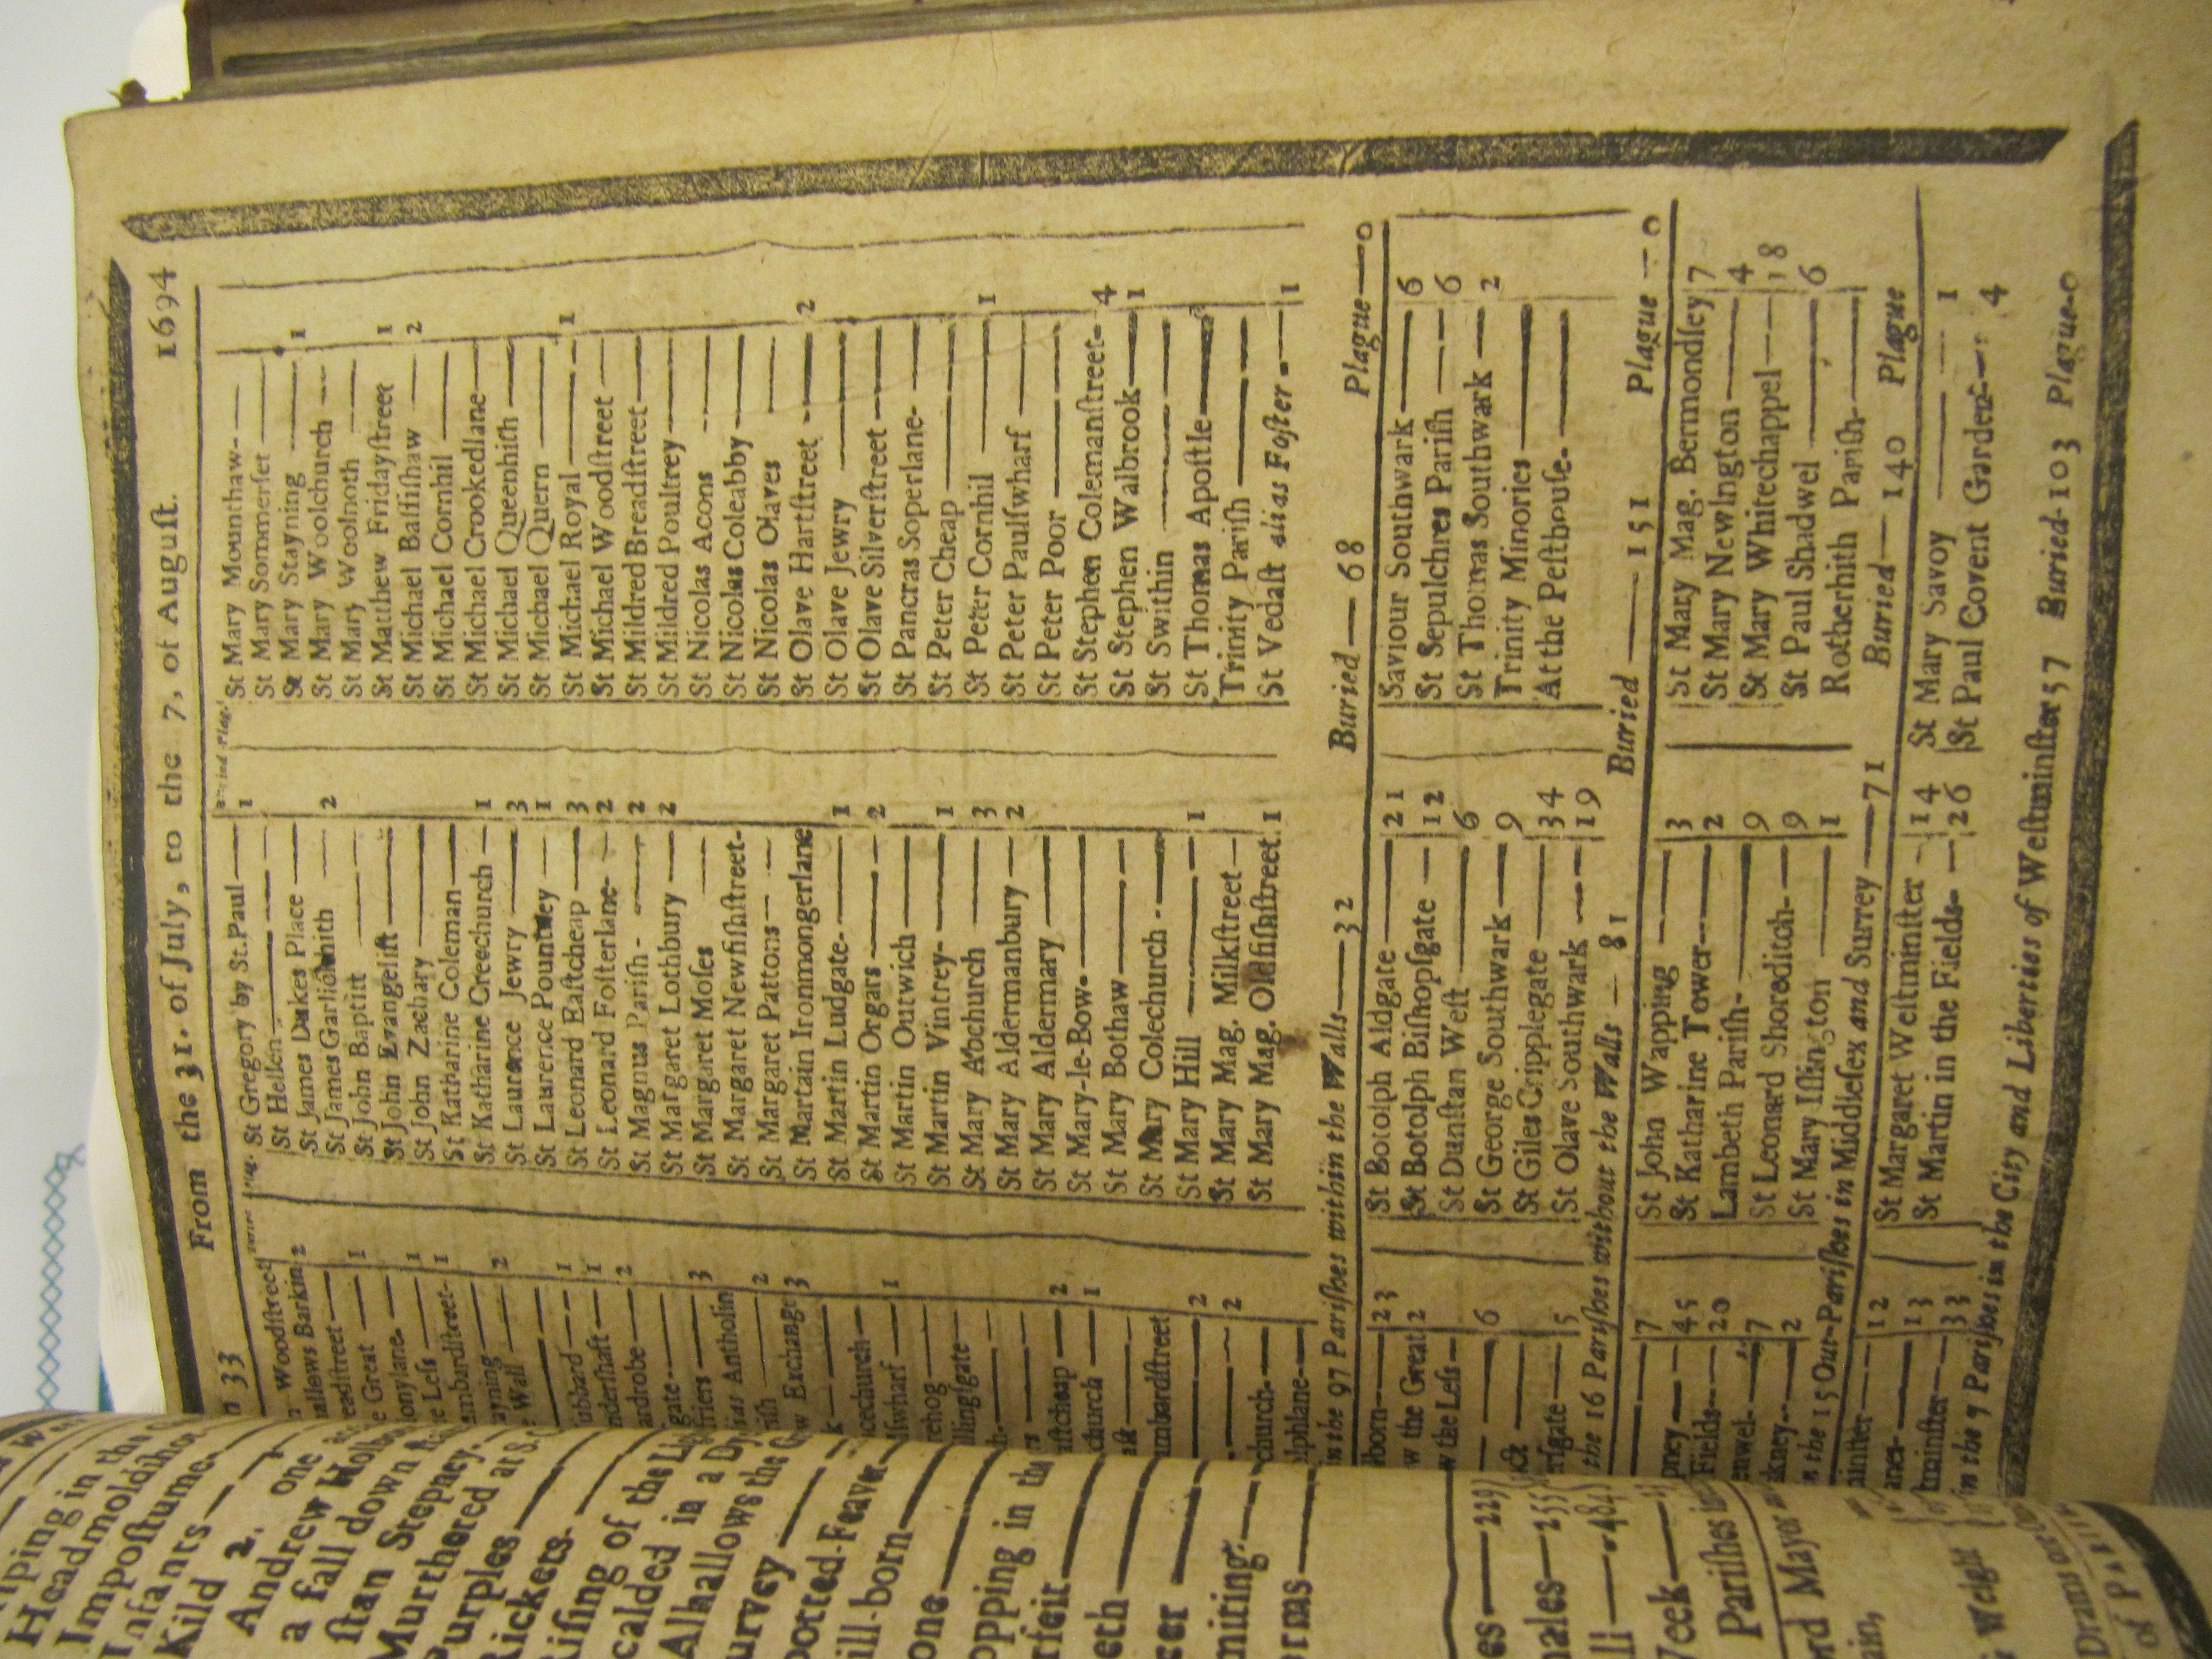 33 From the 31. of July, to the 7, of Auguſt. 1694
Woodſtreet
Barkin 2
readſtreet——
e Great —— 1
onylane. ——
e Leſs —— 1
mbardſtreet- 1
ayning —— 2
e Wall ——
ubbard —— 1
nderſhaft —— 1
ardrobe —— 2
gate ——
friers —— 3
Antholin
riſh —— 2
w Exchange 3
cechurch —
lſwharf —— 1
rehog ——
llingſgate —
aſtcheap —— 2
church —— 1
umbardſtreet
—— 2
—— 2
church-——
lphlane-—
St Gregory by St.Paul—— 1
St Hellen-——
St James Dukes Place ——
St James Garlickhith —— 2
St John Baptiſt ——
St John Evangeliſt ——
St John Zachary ——
St Katharine Coleman——
St Katharine Creechurch — 1
St Laurance Jewry —— 3
St Laurence Pountney — 1
St Leonard Eaſtcheap —— 3
St Leonard Foſterlane- — 2
St Magnus Pariſh - —— 2
St Margaret Lothbury —— 2
St Margaret Moſes ——
St Margaret Newfiſhſtreet-
St Margaret Pattons— —
St Martain Ironmongerlane
St Martin Ludgate-—— 1
St Martin Orgars —— 2
St Martin Outwich——
St Martin Vintrey-—— 1
St Mary Abchurch —— 3
St Mary Aldermanbury — 2
St Mary Aldermary ——
St Mary-le-Bow-——
St Mary Bothaw——
St Mary Colechurch - ——
St Mary Hill —— 1
St Mary Mag. Milkſtreet—
St Mary Mag. Oldfiſhſtreet. 1
St Mary Mounthaw-—
St Mary Sommerſet ——
St Mary Stayning —— 1
St Mary Woolchurch ——
St Mary Woolnoth ——
St Matthew Fridayſtreet 1
St Michael Baſſiſhaw —— 2
St Michael Cornhil ——
St Michael Crookedlane——
St Michael Queenhith ——
St Michael Quern ——
St Michael Royal —— 1
St Michael Woodſtreet ——
St Mildred Breadſtreet——
St Mildred Poultrey ——
St Nicolas Acons ——
St Nicolas Coleabby ——
St Nicolas Olaves ——
St Olave Hartſtreet -—— 2
St Olave Jewry ——
St Olave Silverſtreet ——
St Pancras Soperlane-——
St Peter Cheap ——
St Peter Cornhil —— 1
St Peter Paulſwharf ——
St Peter Poor ——
St Stephen Colemanſtreet- 4
St Stephen Walbrook—— 1
St Swithin ——
St Thomas Apoſtle——
Trinity Pariſh ——
St Vedaſt alias Foſter -—— 1
in the 97 Pariſhes within the Walls——32 Buried— 68 Plague—0
lborn—— 23
w the Great 2
w the Leſs —
—— 6
rigate —— 5
St Botolph Aldgate —— 21
St Botolph Biſhopſgate — 12
St Dunſtan Weſt —— 6
St George Southwark —— 9
St Giles Cripplegate —— 34
St Olave Southwark —— 19
Saviour Southwark —— 6
St Sepulchres Pariſh —— 6
St Thomas Southwark — 2
Trinity Minories ——
At the Peſthouſe-——
the 16 Pariſhes without the Walls — 81 Buried —— 151 Plague -- 0
—— 7
pney —— 45
Fields—— 20
enwel-—— 7
kney-—— 2
St John Wapping —— 3
St Katharine Tower—— 2
Lambeth Pariſh-—— 9
St Leonard Shoreditch-— 9
St Mary Iſlington —— 1
St Mary Mag. Bermondſey 7
St Mary Newington —— 4
St Mary Whitechappel —— 18
St Paul Shadwel —— 6
Rotherhith Pariſh-——
n the 15 Out-Pariſhes in Middleſex and Surrey ——71 Buried— 140 Plague
minſter —— 12
anes- —— 13
tminſter—— 33
St Margaret Weſtminſter - 14
St Martin in the Fields- — 26
St Mary Savoy —— 1
St Paul Covent Garden-— 4
in the 7 Pariſhes in the City and Liberties of Weſtminſter 57 Buried-103 Plague-0
Headmoldſho
Impoſtume
Infants——
Kild 2. one
Andrew Hol
a fall down
ſtan Stepney.
Murthered at S.
Purples——
Rickets-——
Riſing of the Li
calded in a D
Alhallows the
urvey ——
potted-Feaver—
ill-born——
one——
opping in the
rfeit——
eth——
cer ——
miting-——
orms——
es——229
males—255
ll——484
Week——
Pariſhes in
rd Mayor
ain,
Weight
Drams
of